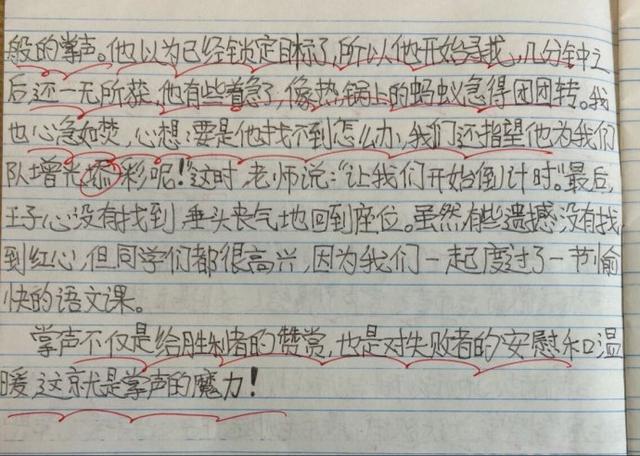 般的掌声。他以为已经锁定目标了,所以他开始寻找,几分钟之
后还一无所获,他有些着急了,像热锅上的蚂蚁急得团团转。我
也心急如焚,心想:要是他找不到怎么办,我们还指望他为我们
队增光添彩呢!这时,老师说:“让我们开始倒计时。”最后,
王子心没有找到,垂头丧气地回到座位。虽然有些遗憾没有找
到红心,但同学们都很高兴,因为我们一起度过了一节愉
快的语文课。
掌声不仅是给胜利者的赞赏,也是对失败者的安慰和温
暖,这就是掌声的魔力!